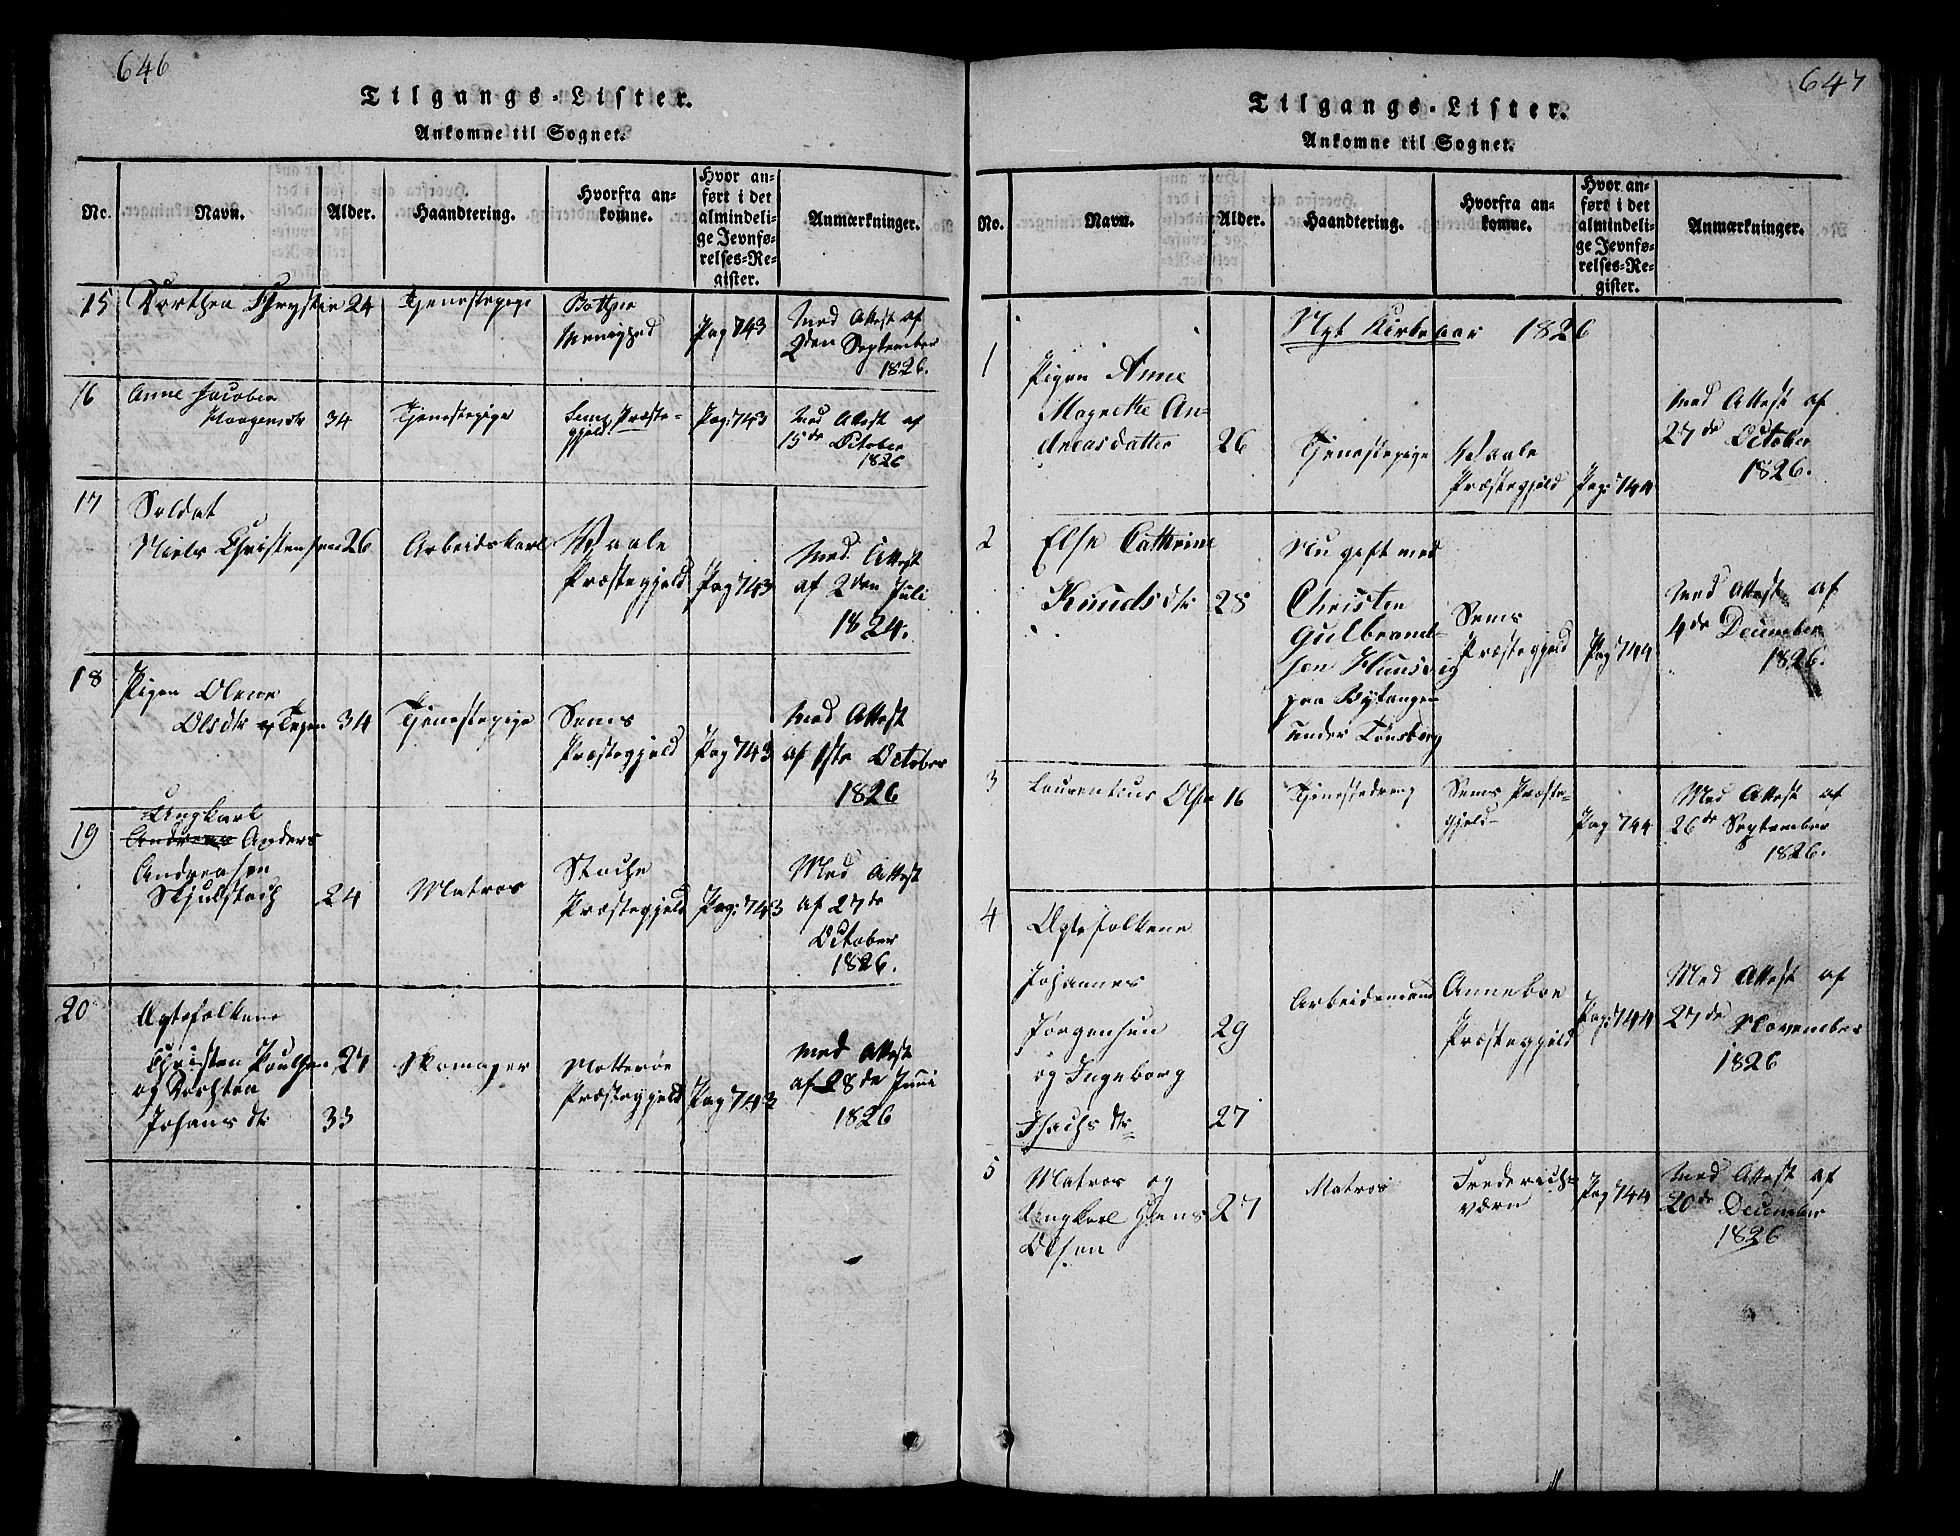 646
Tilgangs-Lister.
Ankomne til Sognet.
No. Navn. Alder. Haandtering. Hvorfra ankomne. Hvor anført i det almindelige Jevnførelses-Register. Anmærkninger.
15 Dorthea Chrystie 24 Tjenestepige
Menighed Pag 743 Med Attest af
2den September
1826.
16 Anne Jacobea
34 Tjenestepige Sems Præste-
gjeld Pag: 743 Med Attest af
15de October
1826
17 Soldat
Niels Christensen 26 Arbeidskarl Waale
Præstegjeld Pag 743 Med Attest
af 2den Juli
1824.
18 Pigen Olene
Olsdtr 34 Tjenestepige Sems
Præstegjeld Pag 743 Med Attest
af 1ste October
1826
19 Ungkarl
Anders
Andreasen
24 Matros Stokke
Præstegjeld Pag: 743 Med Attest
af 27de
October
1826.
20 Ægtefolkene
Christen Poulsen 27 Skomager Nøtterøe
og Dorthea
Johans dtr 33 Præstegjeld Pag 743 Med Attest
af 28de Juni
1826
647
Tilgangs-Lister.
Ankomne til Sognet.
No. Navn. Alder. Haandtering. Hvorfra ankomne. Hvor anført i det almindelige Jevnførelses-Register. Anmærkninger.
Nyt Kirkeaar 1826
1 Pigen Anne
Magrethe An-
dreasdatter 26 Tjenestepige Waale
Præstegjeld Pag: 744 Med Attest af
27de October
1826.
2 Else Cathrine
Knuds dtr 28 Nu gift med
Christen
Gulbrand-
sen
paa Bytangen
under Tønsberg Sems
Præstegjeld Pag 744 Med Attest af
4de December
1826.
3 Laurentius Olsen 16 Tjenestedreng Sems Præste-
gjeld Pag 744 Med Attest af
26de September
1826.
4 Ægtefolkene
Johannes
Jørgensen 29
og Ingeborg
Isachs dtr 27 Arbeidsmand Anneboe
Præstegjeld Pag: 744 Med Attest af
27de November
1826
5 Matros og
Ungkarl Hans
Olsen 27 Matros Friderichs-
værn Pag 744 Med Attest af
20de December
1826